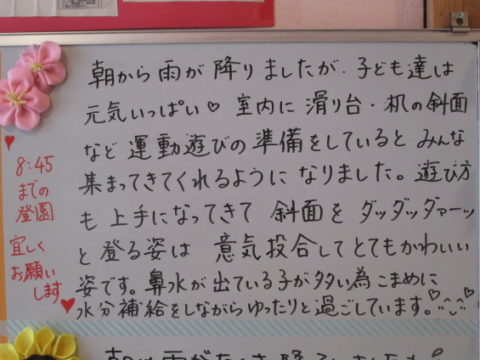 朝から雨が降りましたが、子ども達は
元気いっぱい♡ 室内に滑り台・机の斜面
など運動遊びの準備をしているとみんな
集まってきてくれるようになりました。遊び方
も上手になってきて 斜面をダッダッダァーッ
と登る姿は 意気投合してとてもかわいい
姿です。鼻水が出ている子が多い為こまめに
水分補給をしながらゆったりと過ごしています。
♥
8:45
までの
登園
宜しく
お願い
します
♥